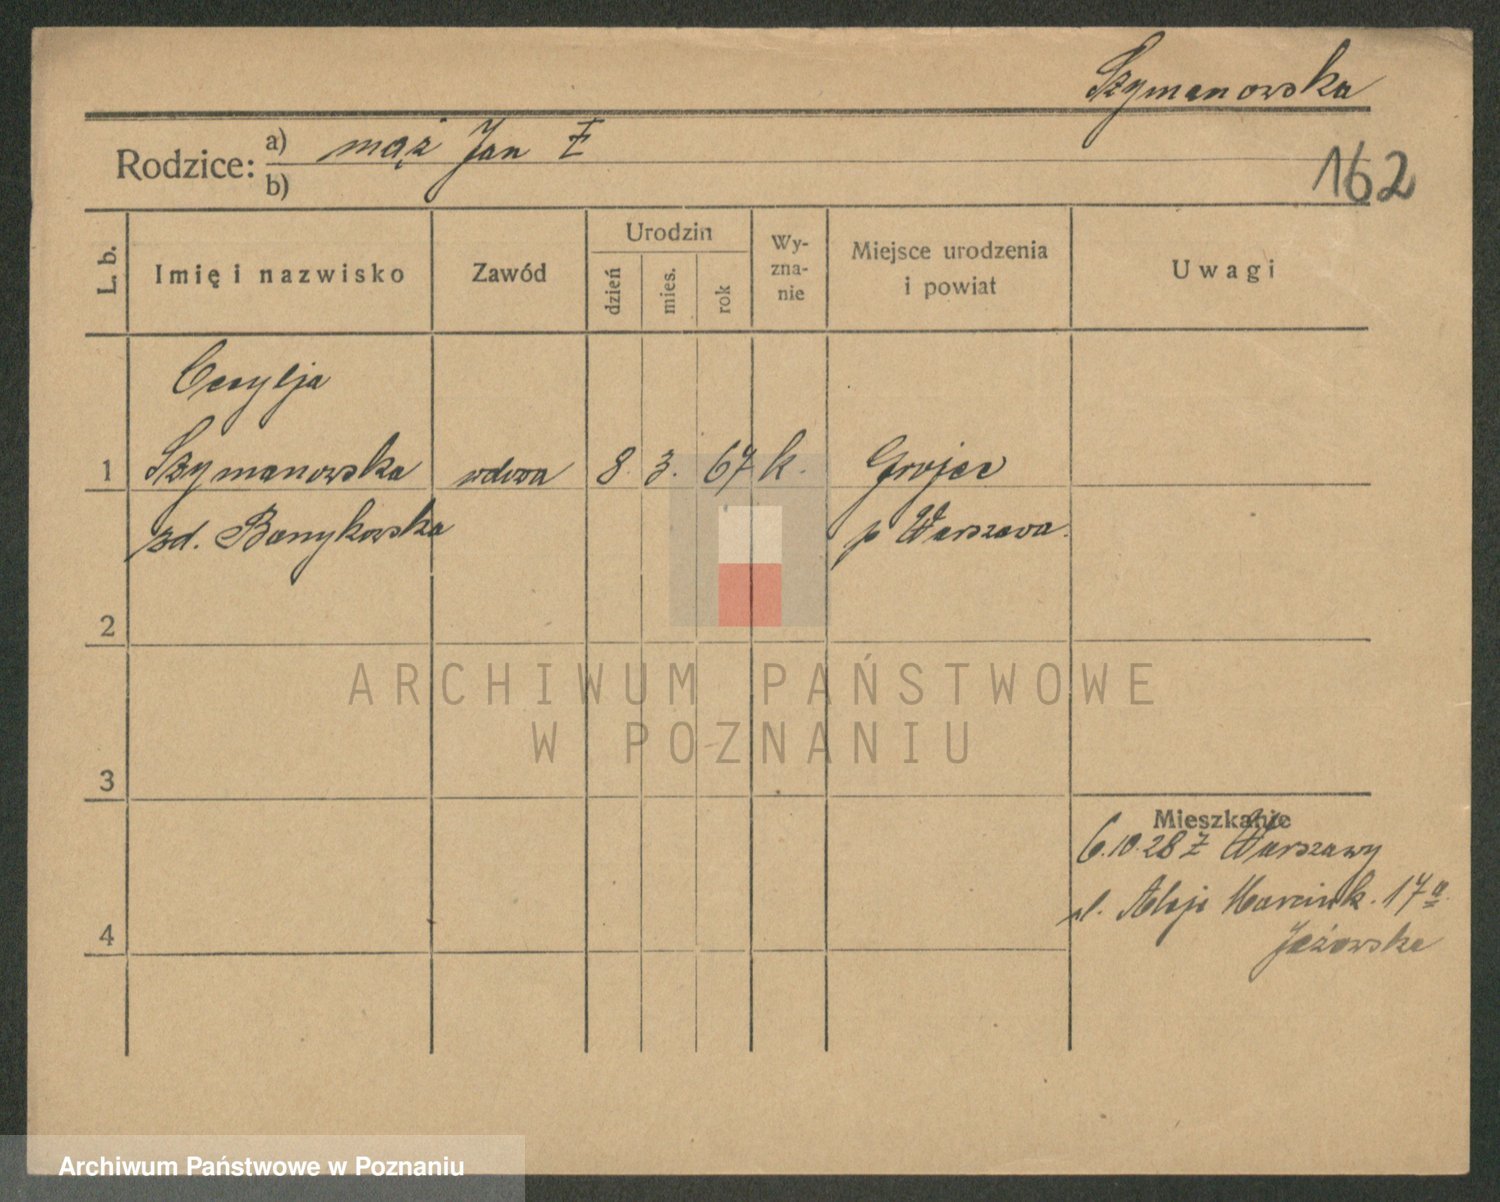 Szymanowska
Rodzice: a) mąż Jan
b)
162
L. b.
Imię i nazwisko
Zawód
Urodzin
dzień
mies.
rok
Wy-
zna-
nie
Miejsce urodzenia
i powiat
Uwagi
Cecylja
1 Szymanowska wdowa 8. 3. 67 k. Grojec
zd. p Warszawa.
2
3
4
Mieszkanie
6.10.28 z Warszawy
Aleje Marcink. 17a
Jeżowska
ARCHIWUM PAŃSTWOWE
W POZNANIU
Archiwum Państwowe w Poznaniu